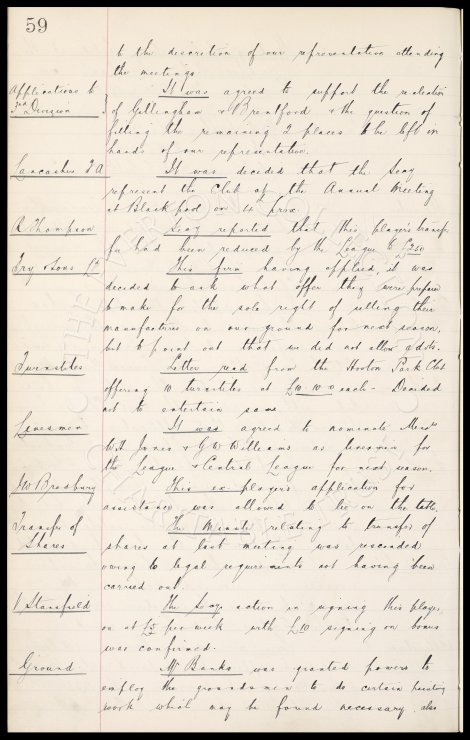 59
to the discretion of our representative attending
the meetings.
Applications to
3rd Division
It was agreed to support the reelection
of Gillingham & Brentford & the question of
filling the remaining 2 places to be left in
hands of our representative.
Lancashire F A
It was decided that the Secy
represent the Club at the Annual Meeting
at Blackpool on 4th prox.
R Thompson
Secy reported that this player's transfer
fee had been reduced by the League to £250
Fry & Sons Ld
This firm having applied, it was
decided to ask what offer they were prepared
to make for the sole right of selling their
manufactures on our ground for next season,
but to point out that we did not allow advts.
Turnstiles
Letter read from the Hooton Park Club
offering 10 turnstiles at £10 10 0 each. Decided
not to entertain same.
Linesmen
It was agreed to nominate Messrs
W H Jones & G W Williams as linesmen for
the League & Central League for next season.
J W Bradbury
This ex player's application for
assistance was allowed to lie on the table.
Transfer of
Shares
The Minute relating to transfer of
shares at last meeting was rescinded
owing to legal requirements not having been
carried out.
J Stansfield
The Secy action in signing this player
on at £5 per week with £10 signing on bonus
was confirmed.
Ground
Mr Banks was granted powers to
employ the groundsmen to do certain painting
work which may be found necessary, also